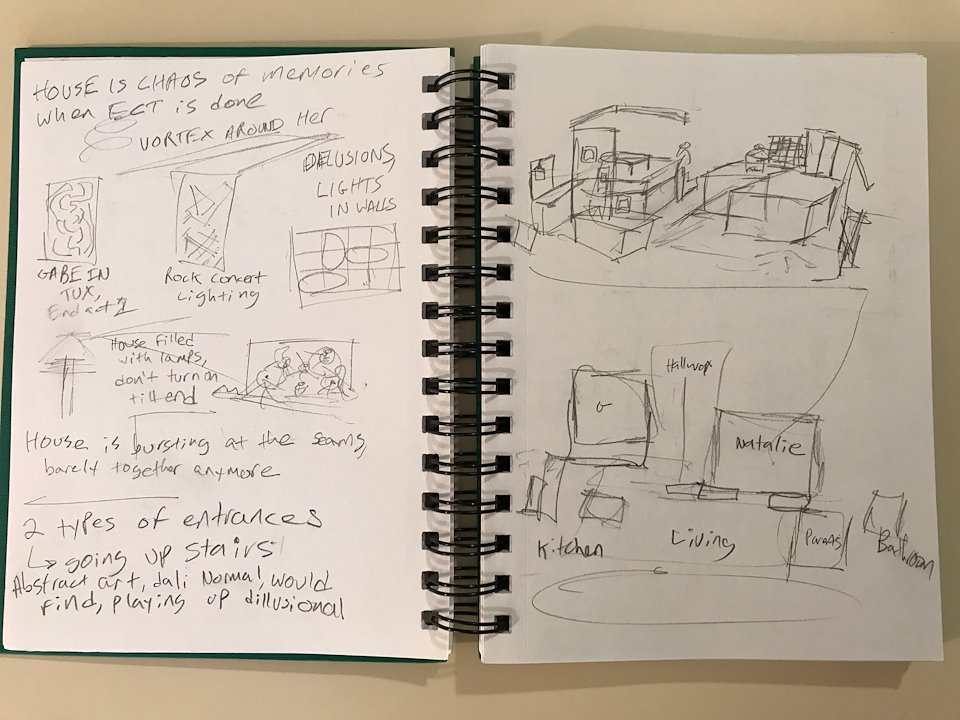 HOUSE IS CHAOS of memories
when ECT is done
VORTEX AROUND Her
DELUSIONS,
LIGHTS
IN WALLS
GABE IN
TUX,
End act 1
Rock concert
Lighting
House filled
with lamps,
don't turn on
till end
House is bursting at the seams,
barely together anymore
2 types of entrances
↳ going up stairs
Abstract art, dali Normal, would
find, playing up dillusional
Hillwop
G
Natalie
Kitchen
Living
Parents
Bathroom